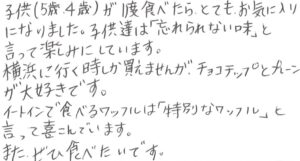 子供(5歳4歳)が1度食べたら、とてもお気に入り
になりました。子供達は「忘れられない味」と
言って楽しみにしています。
横浜に行く時しか買えませんが、チョコチップとプレーン
が大好きです。
イートインで食べるワッフルは「特別なワッフル」と
言って喜こんでいます。
また、ぜひ食べたいです。